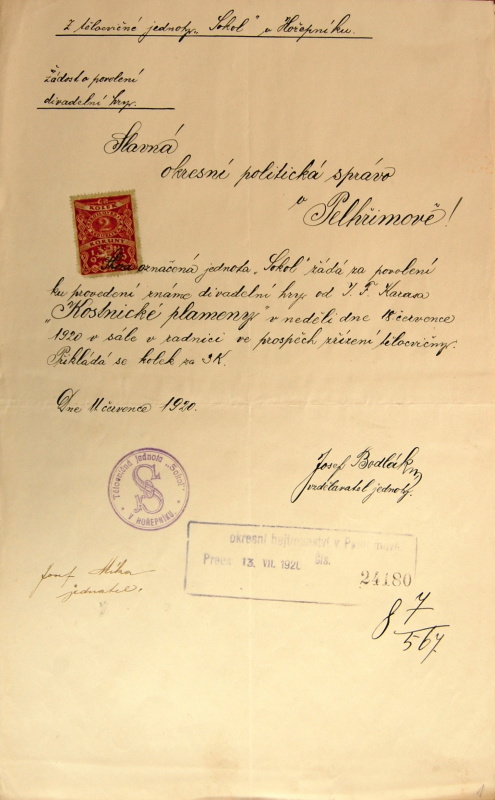 Z tělocvičné jednoty „Sokol" v Hořepníku.
Žádost o povolení
divadelní hry.
Slavná
okresní politická správo
v Pelhřimově!
KOLEK
2
KORUNY
Níže označená jednota „Sokol" žádá za povolení
ku provedení známé divadelní hry od J. F. Karasa
„Kostnické plameny v neděli dne 18 července
1920 v sále v radnici ve prospěch zřízení tělocvičny.
Přikládá se kolek za 2K.
Dne 11 července 1920.
Josef Bodlák
vzdělavatel jednoty.
Tělocvičná jednota „Sokol"
V HOŘEPNÍKU
okresní hejtmanství v Pelhřimově
Praes. 13. VII. 1920. čís.
24180
Josef Mika
jednatel.
8 7/567